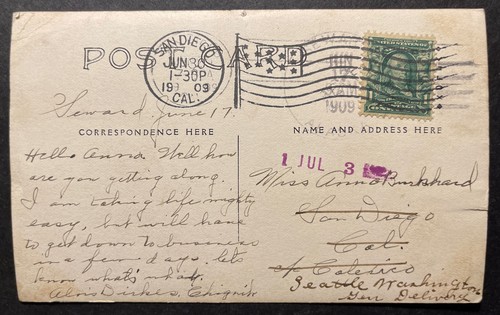 POST CARD
SAN DIEGO
JUN 30
1-30 P
1909
CAL.
JUN
AM
1909
Seward June 17.
CORRESPONDENCE HERE
NAME AND ADDRESS HERE
1 JUL 3
Hello Anna. Well how
are you getting along.
I am taking life mighty
easy, but will have
to get down to business
in a few days. lets
know what's what.
Miss Anna Burkhard
San Diego
Cal.
Seattle Washington
Gen Delivery